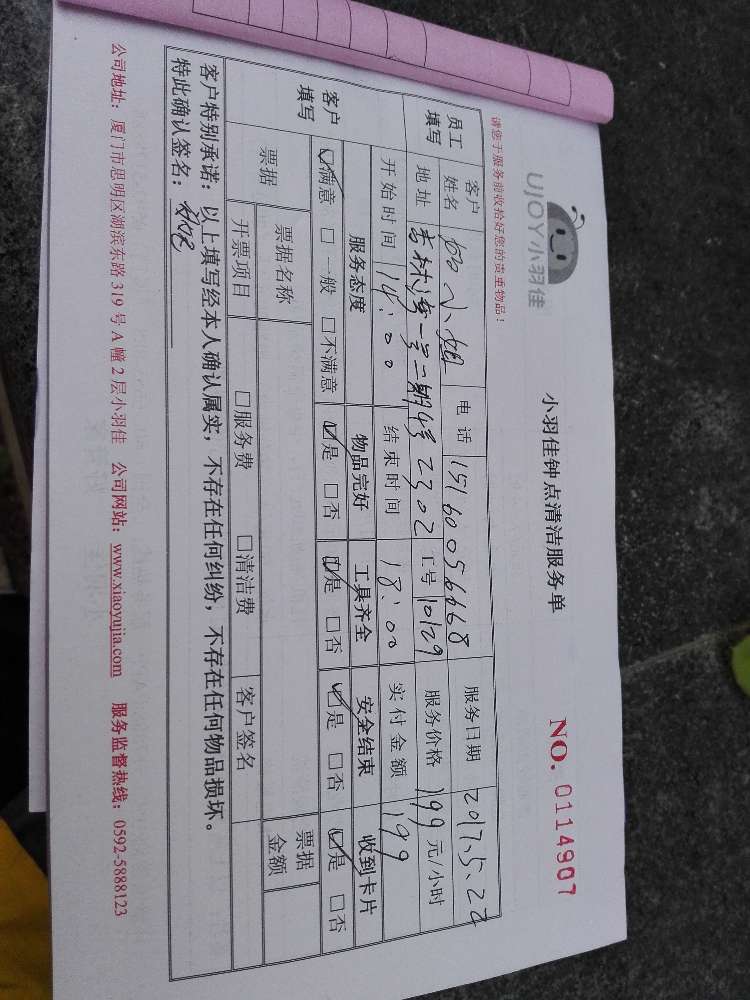 UJOY小羽佳
小羽佳钟点清洁服务单
NO. 0114907
请您于服务前收拾好您的贵重物品！
员工填写
客户姓名 小姐 电话 15160056668 服务日期 2017.5.22
地址 吉林湾一号二期 2302 工号 10129 服务价格 199 元/小时
开始时间 14:00 结束时间 18:00 实付金额 199
客户填写
服务态度 物品完好 工具齐全 安全结束 收到卡片
☑满意 □一般 □不满意 ☑是 □否 ☑是 □否 ☑是 □否 ☑是 □否
票据 票据名称 票据金额
开票项目 □服务费 □清洁费 客户签名
客户特别承诺：以上填写经本人确认属实，不存在任何纠纷，不存在任何物品损坏。
特此确认签名：
公司地址：厦门市思明区湖滨东路319号A幢2层小羽佳 公司网站：www.xiaoyujia.com 服务监督热线：0592-5888123